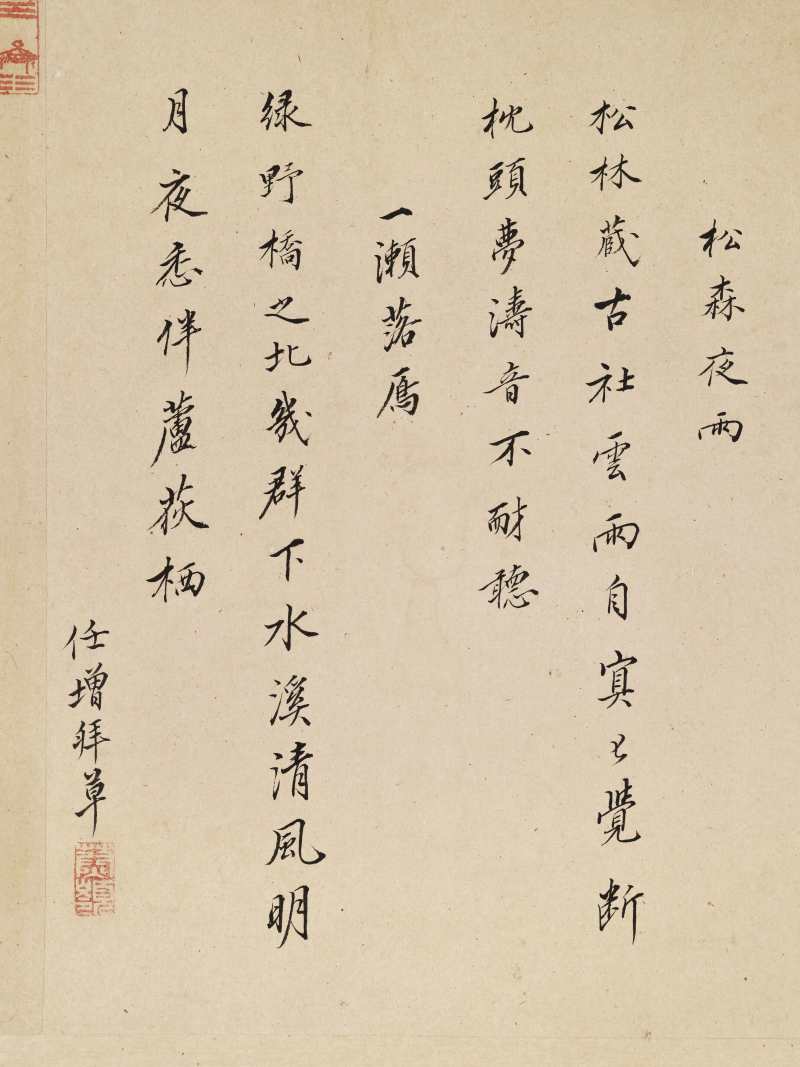 松森夜雨
松林蔵古社雲雨自冥〻覺断
枕頭夢濤音不耐聴
一瀬落鴈
緑野橋之北幾群下水溪清風明
月夜悉伴蘆荻栖
任増拜草